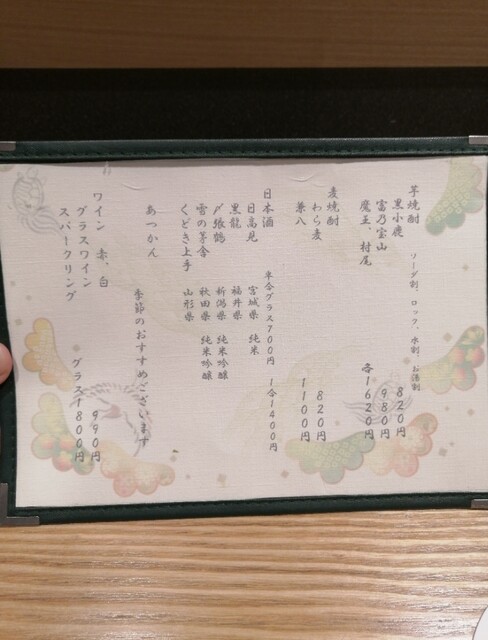 芋焼酎 ソーダ割、ロック、水割、お湯割
黒小鹿 820円
富乃宝山 980円
魔王、村尾 各1620円
麦焼酎
わら麦 820円
兼八 1100円
日本酒 半合グラス700円 1合1400円
日高見 宮城県 純米
黒龍 福井県
〆張鶴 新潟県 純米吟醸
雪の茅舎 秋田県 純米吟醸
くどき上手 山形県
季節のおすすめございます
あつかん
ワイン 赤、白
グラスワイン 990円
スパークリング グラス1800円